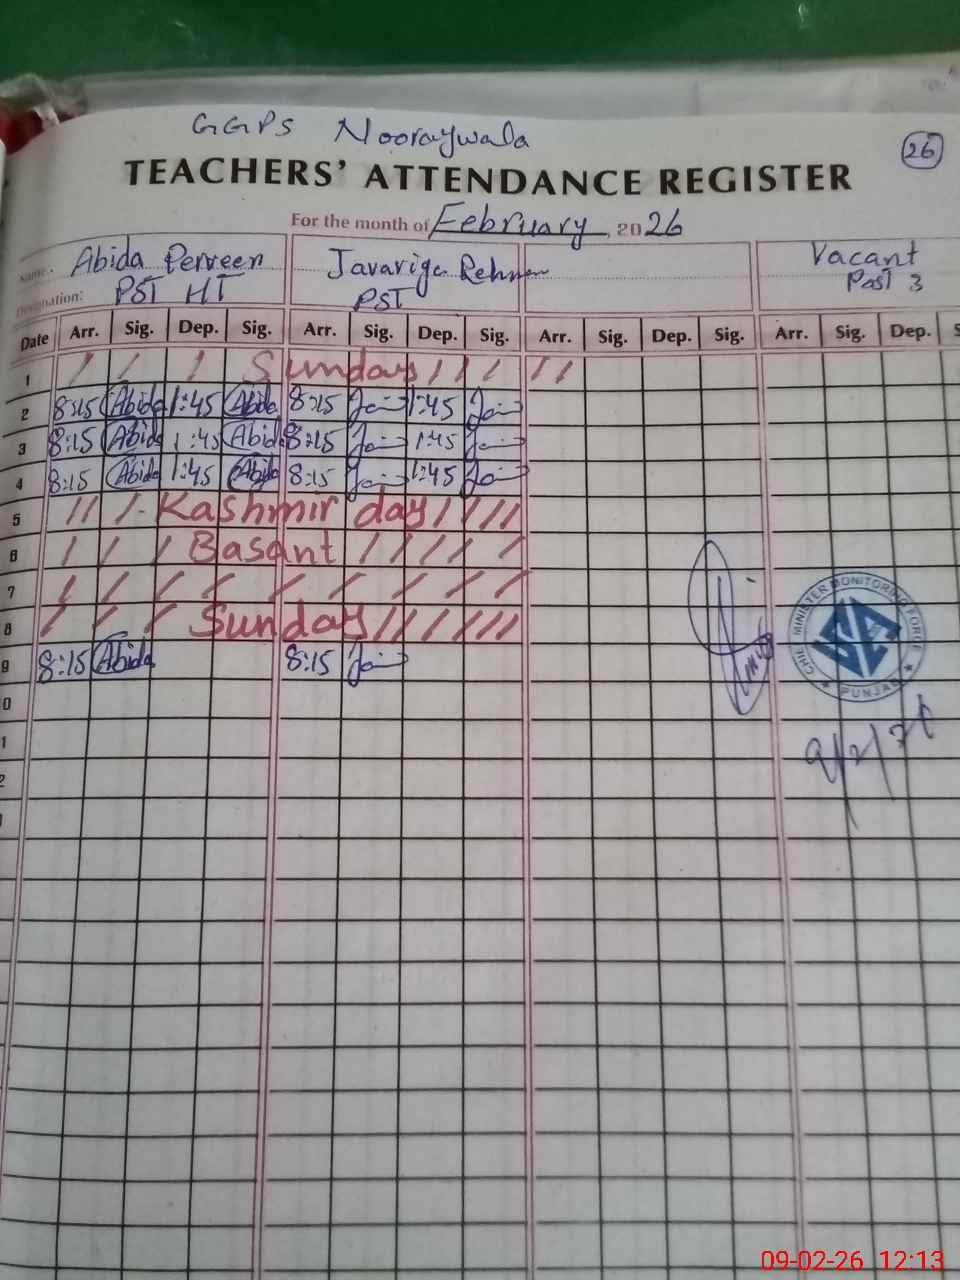 GGPS Nooraywala
26
TEACHERS' ATTENDANCE REGISTER
For the month of February, 2026
Name: Abida Perveen Javariya Rehman Vacant
Designation: PST HT PST Post 3
Date Arr. Sig. Dep. Sig. Arr. Sig. Dep. Sig. Arr. Sig. Dep. Sig. Arr. Sig. Dep. S
1 / / / Sunday / / / / /
2 8:15 Abida 1:45 Abida 8:15 1:45
3 8:15 Abida 1:45 Abida 8:15 1:45
4 8:15 Abida 1:45 Abida 8:15 1:45
5 / / / Kashmir day / / / /
6 / / / Basant / / / / /
7 / / / / / / / / /
8 / / / Sunday / / / / / /
9 8:15 Abida 8:15
CHIEF MINISTER MONITORING FORCE
PUNJAB
0
1
2
9/2/26
09-02-26 12:13